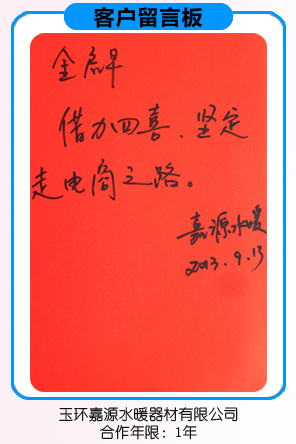 客户留言板
借力四喜,坚定
走电商之路。
嘉源水暖
2013.9.13
玉环嘉源水暖器材有限公司
合作年限:1年